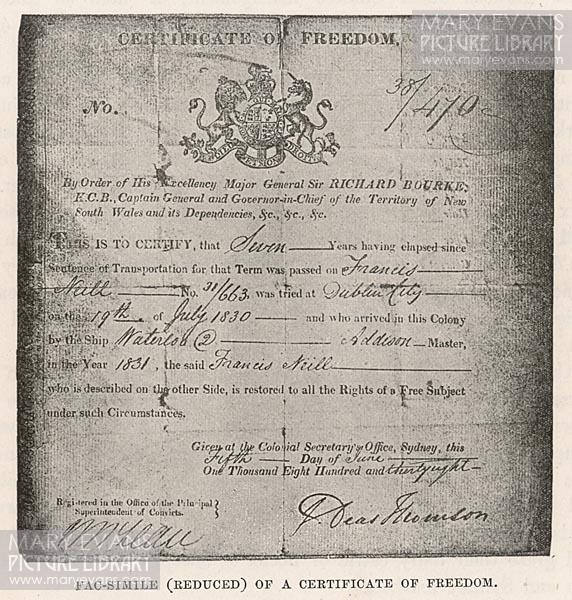 MARY EVANS
PICTURE LIBRARY
www.maryevans.com
CERTIFICATE OF FREEDOM,
No.
38/470
DIEU ET MON DROIT
By Order of His Excellency Major General Sir RICHARD BOURKE,
K.C.B., Captain General and Governor-in-Chief of the Territory of New
South Wales and its Dependencies, &c., &c., &c.
THIS IS TO CERTIFY, that Seven Years having elapsed since
Sentence of Transportation for that Term was passed on Francis
Neill No. 31/663, was tried at Dublin City
on the 19th of July 1830 and who arrived in this Colony
by the Ship Waterloo (2) Addison Master,
in the Year 1831, the said Francis Neill
who is described on the other Side, is restored to all the Rights of a Free Subject
under such Circumstances.
Given at the Colonial Secretary's Office, Sydney, this
Fifth Day of June
One Thousand Eight Hundred and thirty eight
Registered in the Office of the Principal
Superintendent of Convicts.
E Deas Thomson
MARY EVANS
PICTURE LIBRARY
www.maryevans.com
MARY EVANS
PICTURE LIBRARY
www.maryevans.com
FAC-SIMILE (REDUCED) OF A CERTIFICATE OF FREEDOM.